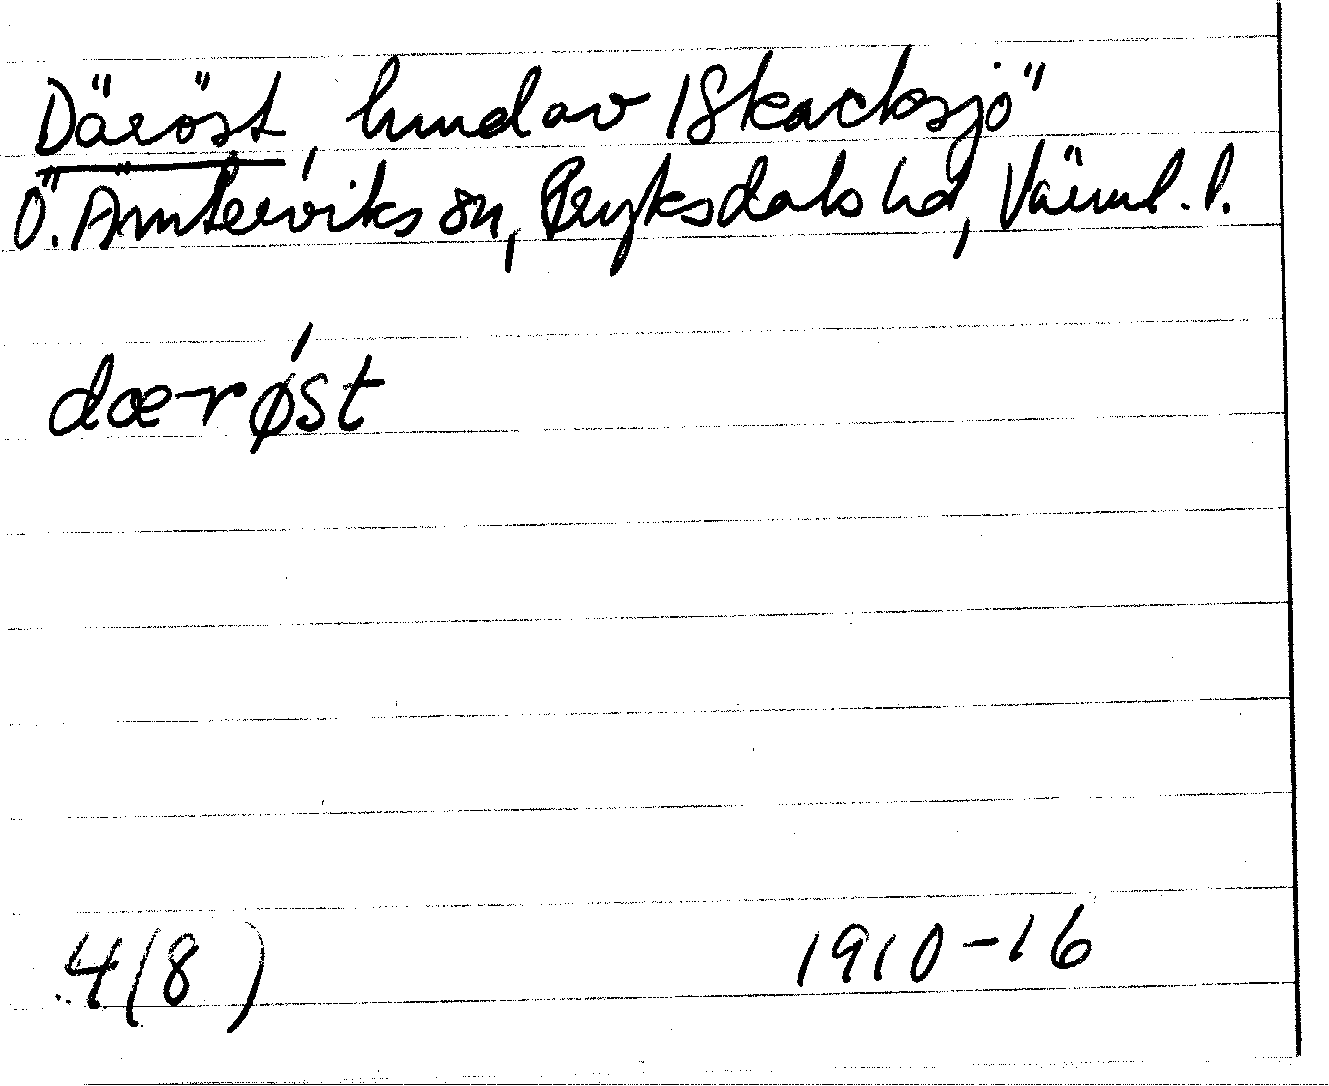 Däröst, hmd av 1 Skacksjö
Ö. Ämterviks sn, Fryksdals hd, Värml. l.
dæ-røst
4(8)
1910-16